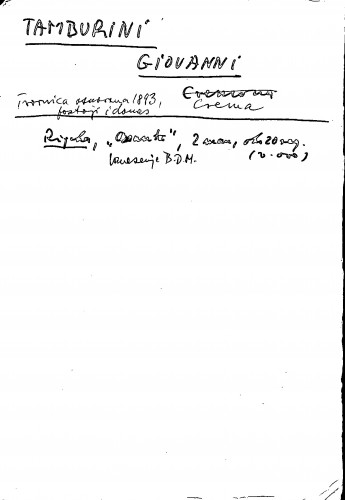 TAMBURINI
GIOVANNI
Tvornica osnovana 1893, Cremona
postoji i danas Crema
Rijeka, „ ", 2 man, oko 20 reg.
B.D.M. (v. ooo)